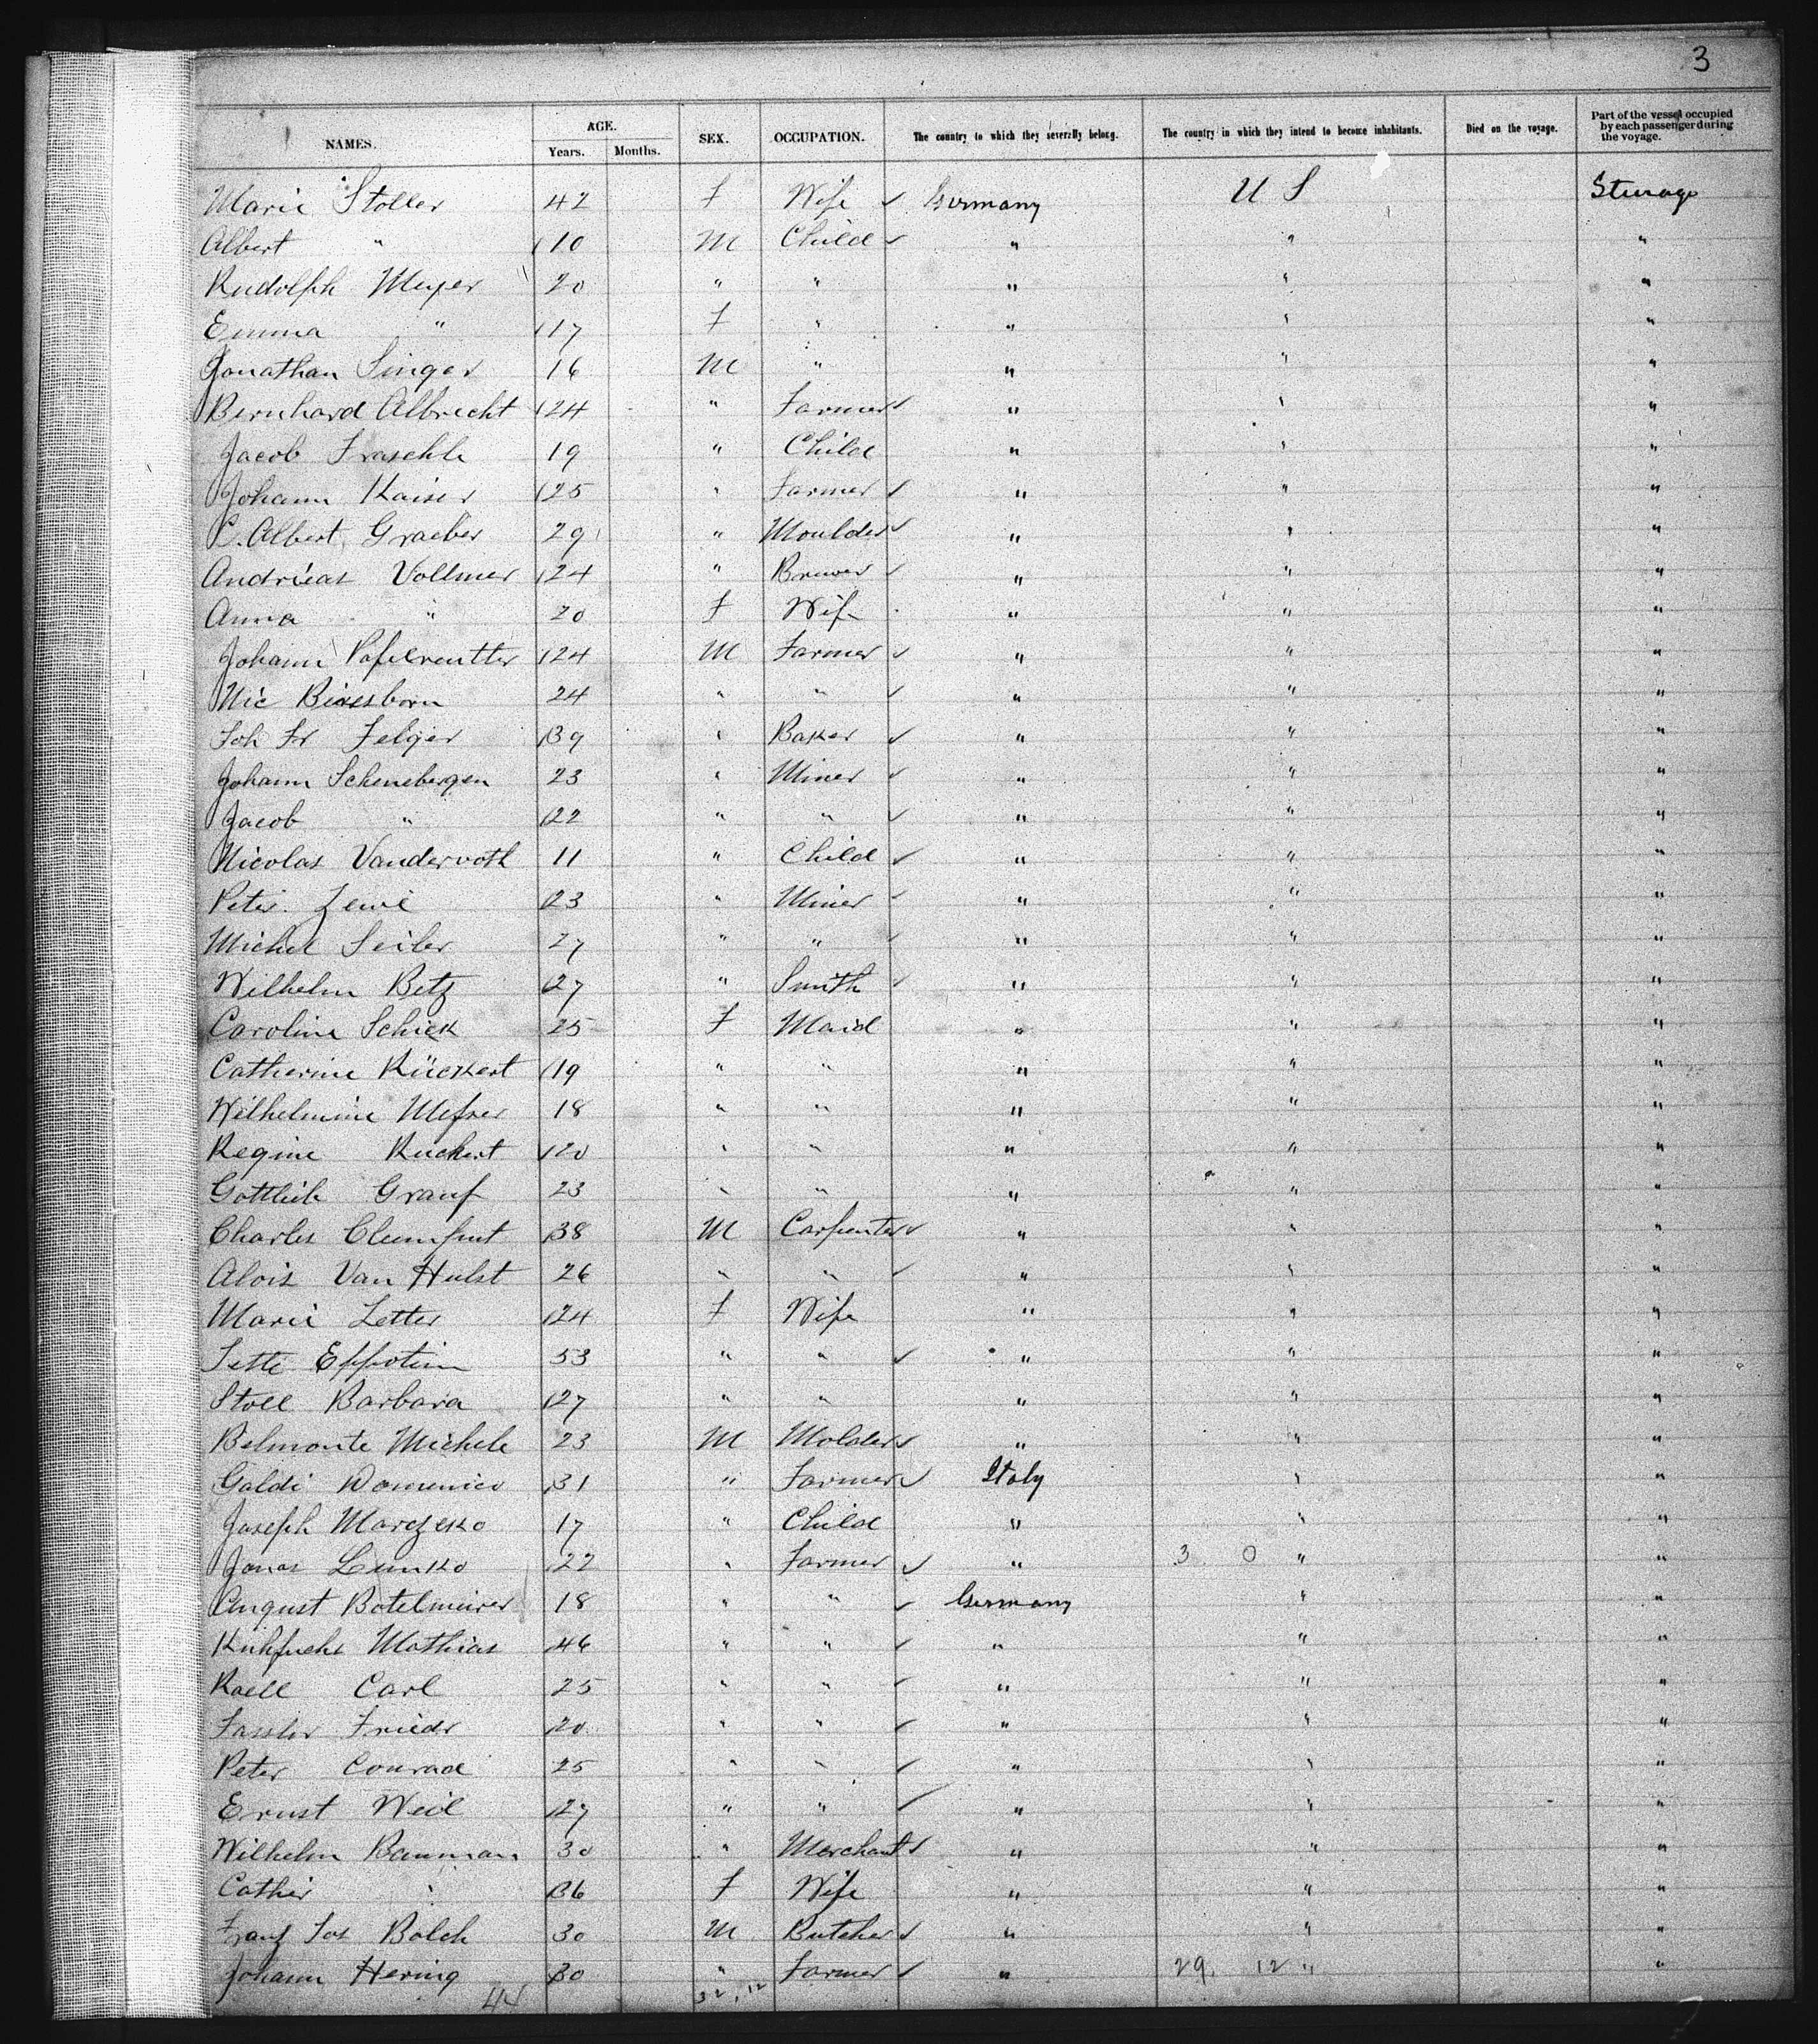 3
NAMES. AGE. Years. Months. SEX. OCCUPATION. The country to which they severally belong. The country in which they intend to become inhabitants. Died on the voyage. Part of the vessel occupied by each passenger during the voyage.
Marie Stoller 42 F Wife ✓ Germany U S Steerage
Albert " 10 M Child ✓ " " "
Rudolph Meyer 20 " " " " "
Emma " 17 F " " " "
Jonathan Singer 16 M " " " "
Bernhard Albrecht 24 " Farmer ✓ " " "
Jacob Fraschle 19 " Child " " "
Johann Kaiser 25 " Farmer ✓ " " "
C. Albert Graeber 29 " Moulder ✓ " " "
Andrieas Vollmer 24 " Brewer ✓ " " "
Anna " 20 F Wife " " "
Johann 24 M Farmer ✓ " " "
Nic Bivesborn 24 " " ✓ " " "
Joh Fr Felger 39 " Baker ✓ " " "
Johann Scheuebergen 23 " Miner ✓ " " "
Jacob " 22 " " ✓ " " "
Nicolas Vandervoth 11 " Child ✓ " " "
Peter Zewe 23 " Miner ✓ " " "
Michel Seiler 27 " " ✓ " " "
Wilhelm Betz 27 " Smith ✓ " " "
Caroline Schick 25 F Maid " " "
Catherine Rückert 19 " " " " "
Wilhelmine Mefser 18 " " " " "
Regine Ruckert 20 " " " " "
Gottlieb Grauf 23 " " " " "
Charles 38 M Carpenter ✓ " " "
Alois Van Hulst 26 " " ✓ " " "
Marie Letter 24 F Wife " " "
Jette Eppotein 53 " " ✓ " " "
Stoll Barbara 27 " " " " "
Belmonte Michele 23 M Molder ✓ " " "
Galdi Domenico 31 " Farmer ✓ Italy " "
Joseph Marczeko 17 " Child " " "
Jonas Lunko 22 " Farmer ✓ " 3 0 " "
August Botelmeirer 18 " " ✓ Germany " "
Kuhfuchs Mathias 46 " " ✓ " " "
Roell Carl 25 " " ✓ " " "
Fassler Friedr 20 " " ✓ " " "
Peter Conrad 25 " " ✓ " " "
Ernst Weil 27 " " ✓ " " "
Wilhelm Bauman 30 " Merchant ✓ " " "
Cather " 36 F Wife " " "
Franz Jos Bolch 30 M Butcher ✓ " " "
Johann Hering 30 " Farmer ✓ " 29. 12 " "
44 32, 12